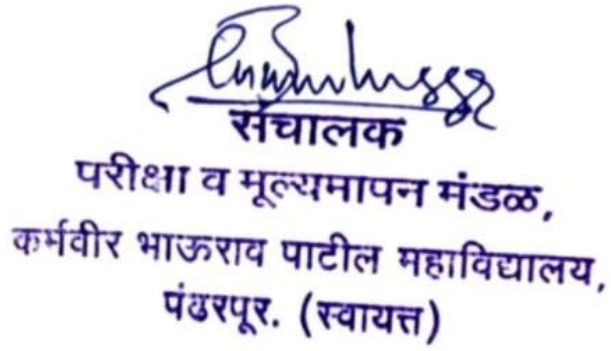 संचालक
परीक्षा व मूल्यमापन मंडळ,
कर्मवीर भाऊराव पाटील महाविद्यालय,
पंढरपूर. (स्वायत्त)